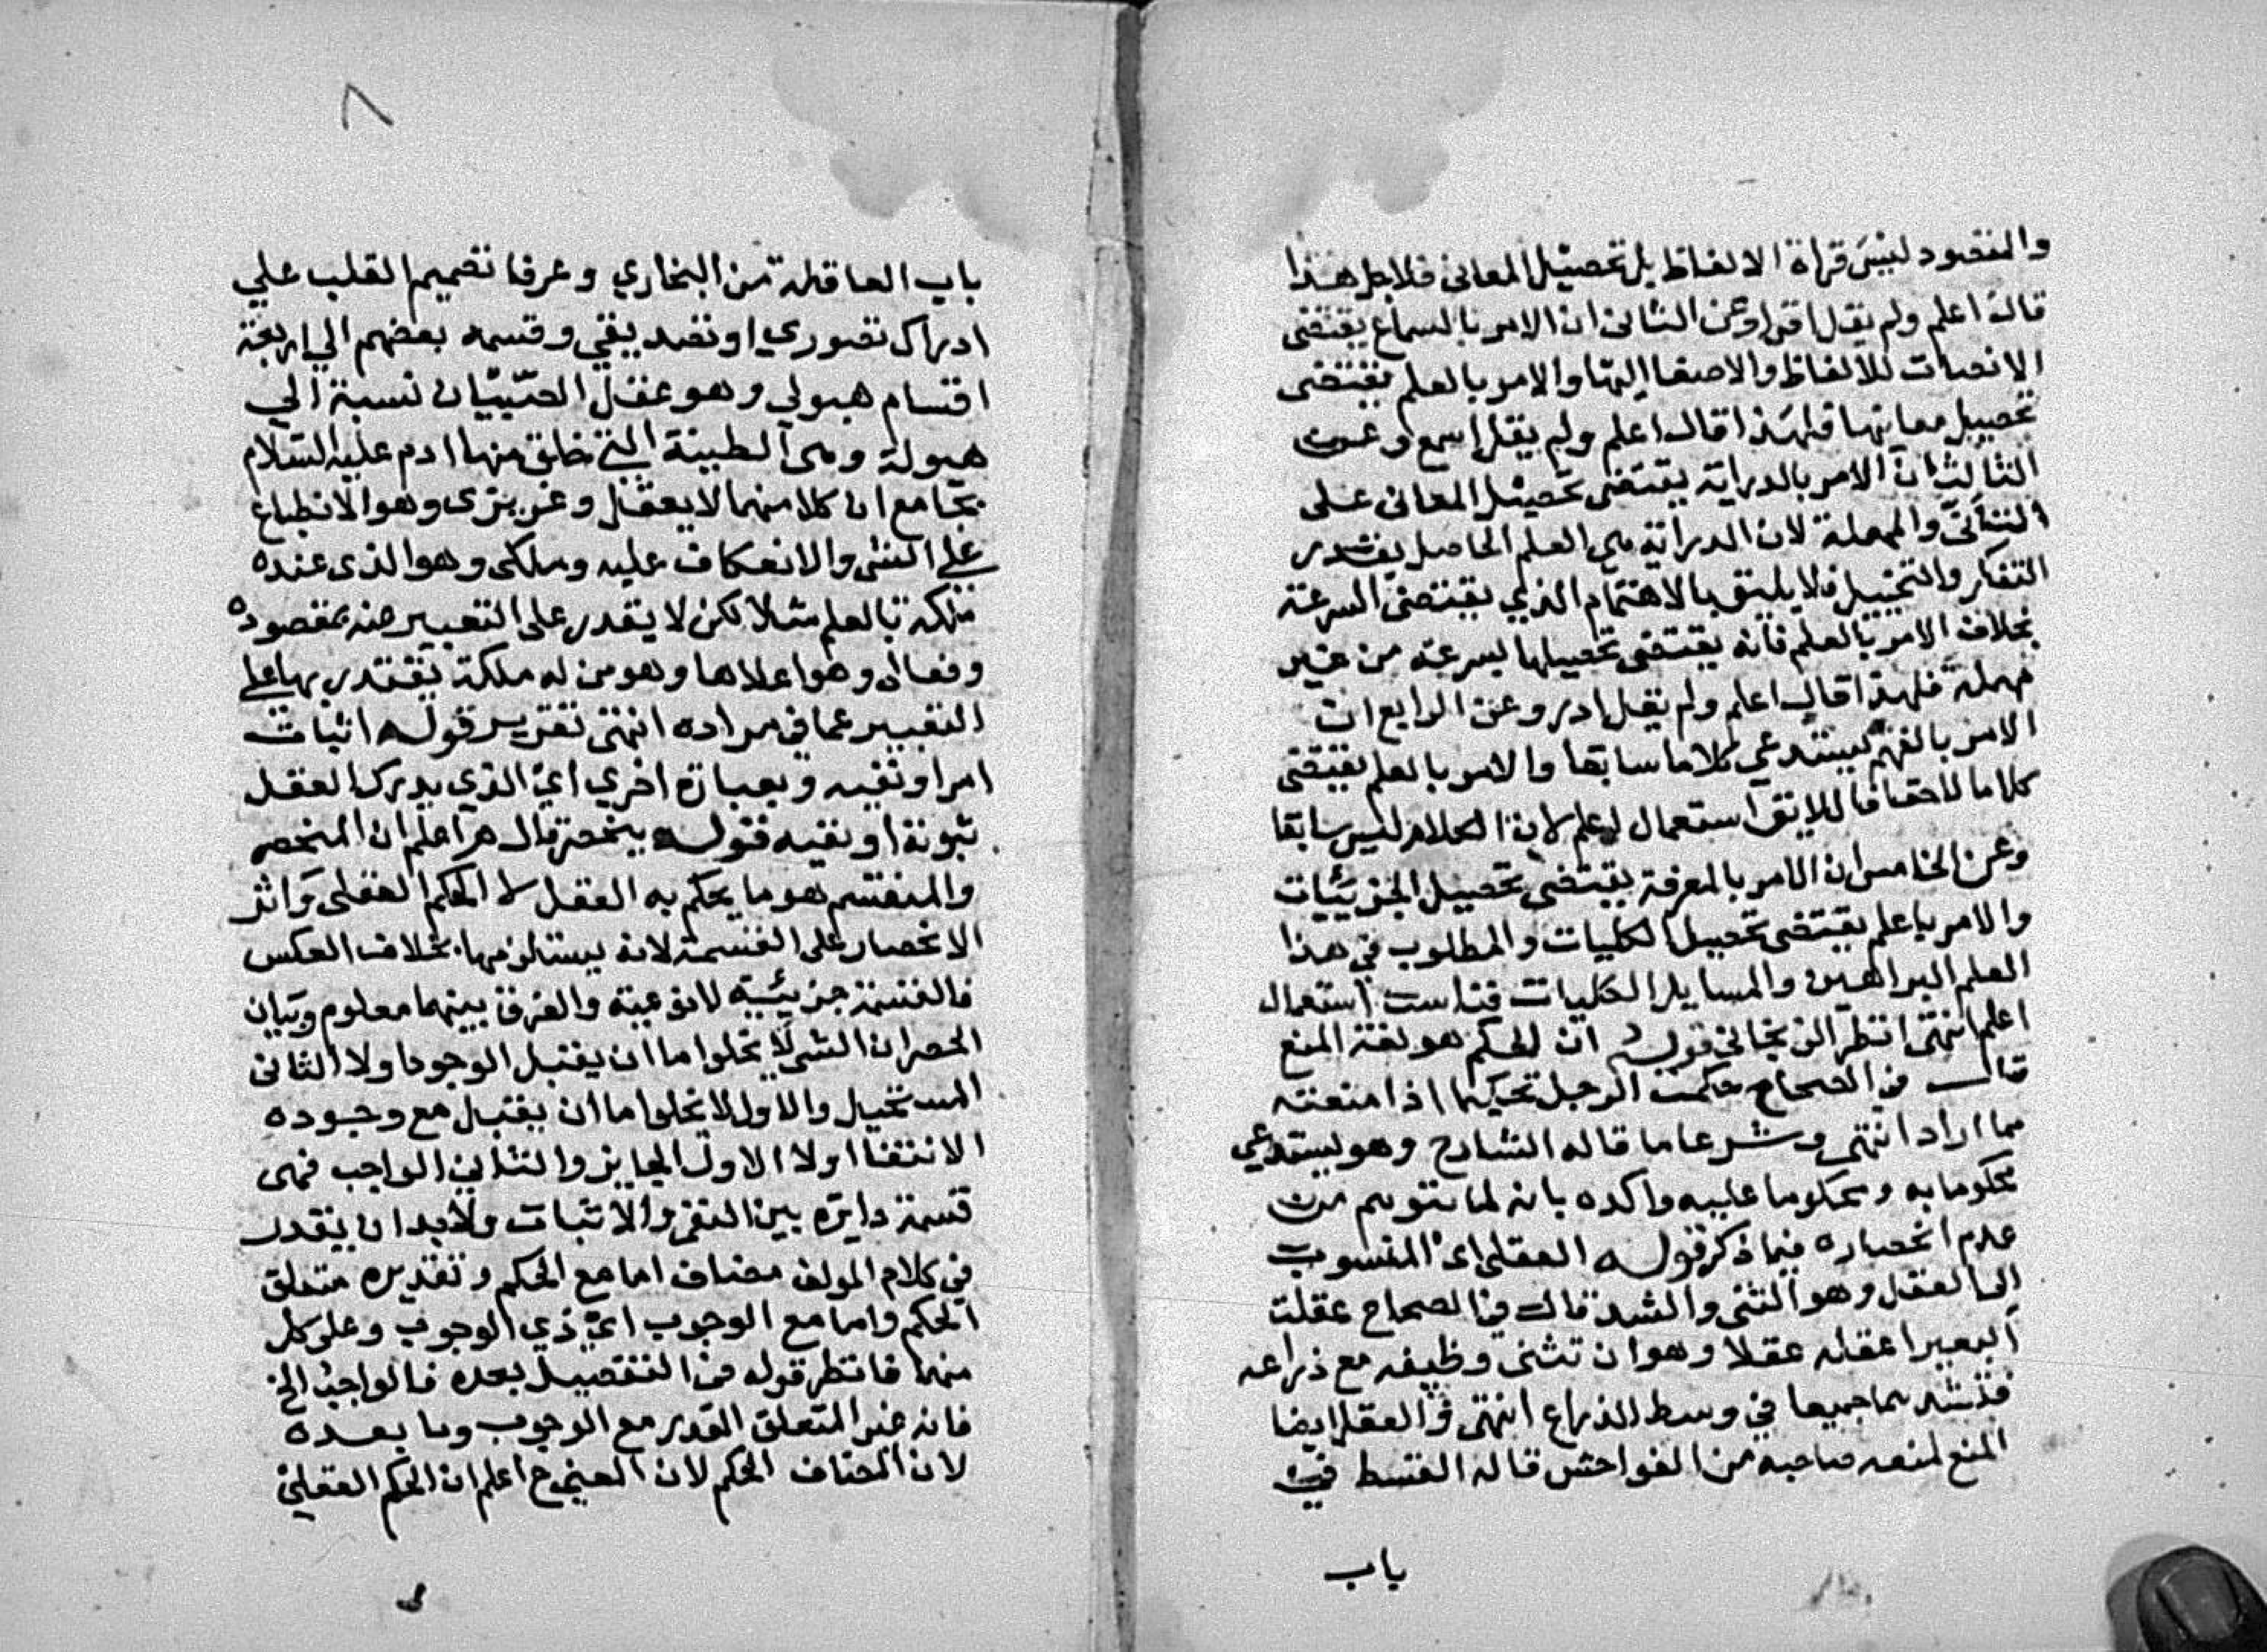 والمقصود ليس قراة الالفاظ بل تحصيل المعانى فلاجل هذا
قال اعلم ولم يقل اقرا وعن الثانى ان الامر بالسماع يقتضى
الانصات للالفاظ والاصغا اليها والامر بالعلم يقتضى
تحصيل معانيها فلهذا قال اعلم ولم يقل اسمع وعن
الثالث ان الامر بالدراية يقتضى تحصيل المعانى على
التأنى والمهلة لان الدراية هى العلم الحاصل بعد
التفكر والتخييل فلا يليق بالاهتمام الذي يقتضى السرعة
بخلاف الامر بالعلم فانه يقتضى تحصيلها بسرعة من غير
مهلة فلهذا قال اعلم ولم يقل ادر وعن الرابع ان
الامر بالفهم يستدعى كلاما سابقا والامر بالعلم يقتضى
كلاما لاحقا فاللايق استعمال اعلم لان الكلام ليس سابقا
وعن الخامس ان الامر بالمعرفة يقتضى تحصيل الجزئيات
والامر باعلم يقتضى تحصيل الكليات والمطلوب فى هذا
العلم البراهين والمسايل الكليات فناسب استعمال
اعلم انتهى انظر قوله ان الحكم هو لغة المنع
قال فى الصحاح حكمت الرجل تحكيما اذا منعته
مما اراد انتهى وشرعا ما قاله الشارح وهو يستدعي
محكوما به ومحكوما عليه واكده بان لما يتوهم من
عدم انحصاره فيما ذكر قوله العقلى اى المنسوب
الى العقل وهو الثنى والشد قال فى الصحاح عقلت
البعير اعقله عقلا وهو ان تثنى وظيفه مع ذراعه
فتشدهما جميعا في وسط الذراع انتهى والعقل ايضا
المنع لمنعه صاحبه من الفواحش قاله القسط في
باب
٨
باب العاقلة من البخاري وعرفا تصميم القلب علي
ادراك تصوري او تصديقي وقسمه بعضهم الي اربعة
اقسام هيولي وهو عقل الصبيان نسبة الي
هيولة وهى الطينة التي خلق منها ادم عليه السلام
بجامع ان كلا منهما لا يعقل وغريزى وهو الانطباع
على الشئ والانعكاف عليه وملكى وهو الذى عنده
ملكة بالعلم مثلا لكن لا يقدر على التعبير عنه بمقصوده
وفعال وهو اعلاها وهو من له ملكة يقتدر بها على
التعبير عما فى مراده انتهى تقرير قوله اثبات
امر او نفيه وبعبارة اخري اي الذي يدرك العقل
ثبوته او نفيه قوله ينحصر قال اعلم ان المنحصر
والمنقسم هو ما يحكم به العقل لا الحكم العقلى واثر
الانحصار على القسمة لانه يستلزمها بخلاف العكس
فالقسمة جزئية لا نوعية والفرق بينهما معلوم وبيان
الحصر ان الشى لا يخلوا اما ان يقبل الوجود او لا الثانى
المستحيل والاول لا يخلوا اما ان يقبل مع وجوده
الانتفا اولا الاول الجايز والثانى الواجب فهى
قسمة دايرة بين النفى والاثبات ولابد ان يقدر
في كلام المولف مضاف اما مع الحكم وتقديره متعلق
الحكم واما مع الوجوب اي ذي الوجوب وعلى كل
منهما فانظر قوله فى التفصيل بعده فالواجب الخ
فانه غير المتعلق القدر مع الوجوب وما بعده
لان المضاف الحكم لان المعنى ح اعلم ان الحكم العقلى